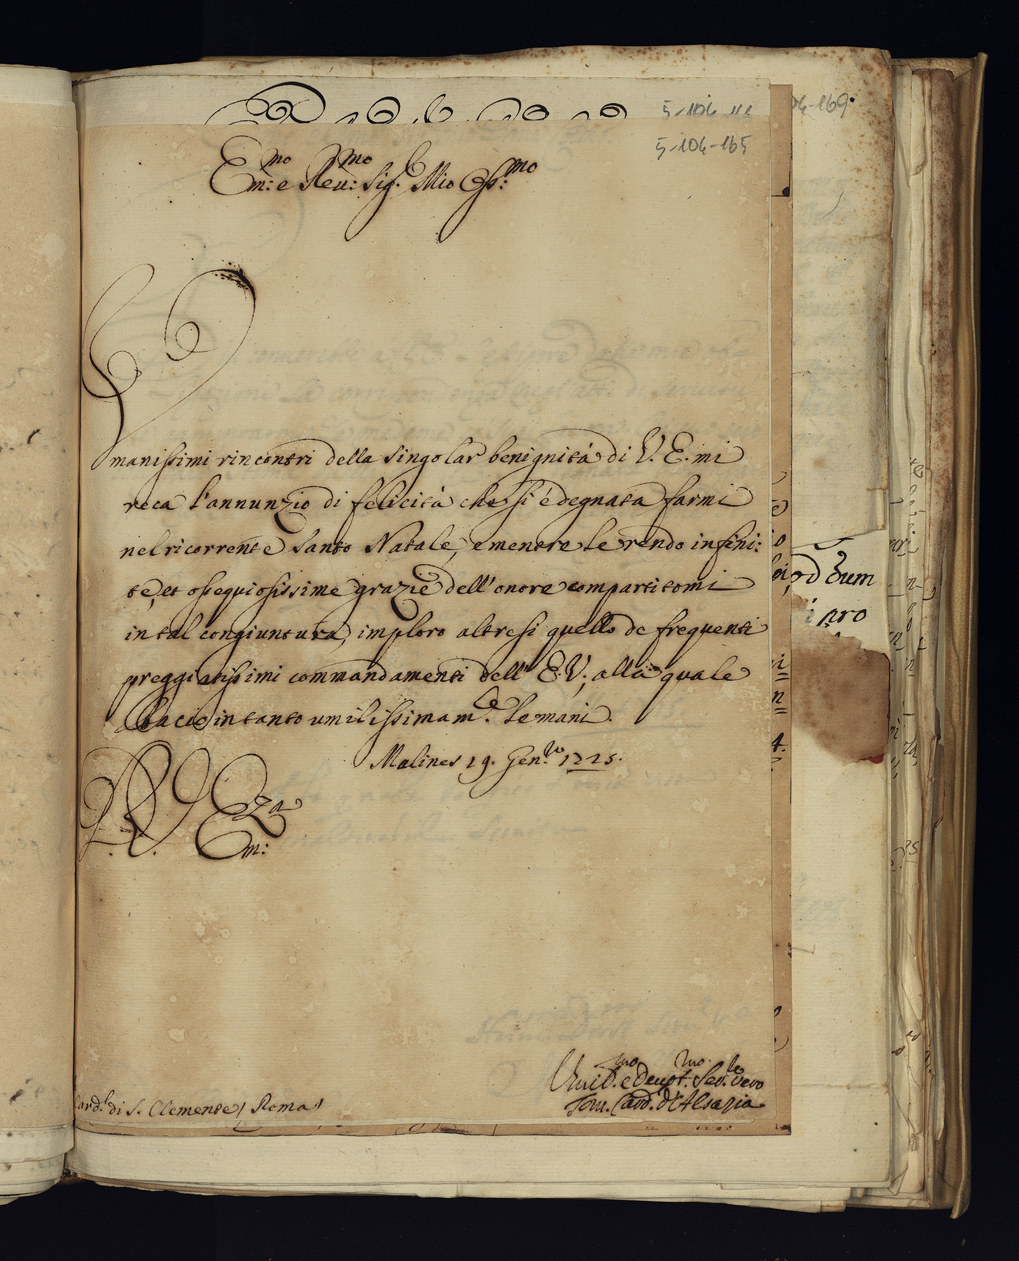 5-104-165
Em:mo e Reu:mo Sig. Mio Oss:mo
Vmanissimi rincontri della singolar benignità di V. E. mi
reca l'annunzio di felicità che si é degnata farmi
nel ricorrente Santo Natale, e mentre le rendo infini:
te, et ossequiosissime grazie dell'onore compartitomi
in tal congiuntura, imploro altresi quello de frequenti
preggiatissimi commandamenti dell' E. V., alla quale
bacio intanto umilissimam.te le mani.
Malines 19. Gen.ro 1725.
D. V. Em:za
Card.l di S. Clemente / Roma /
Umil.mo e Deuot.mo Ser.re Vero
Tom. Card. d'Alsazia